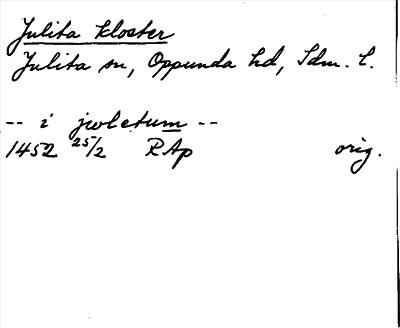 Julita kloster
Julita sn, Oppunda hd, Sdm. l.
-- i jwletum --
1452 25/2 RAp orig.